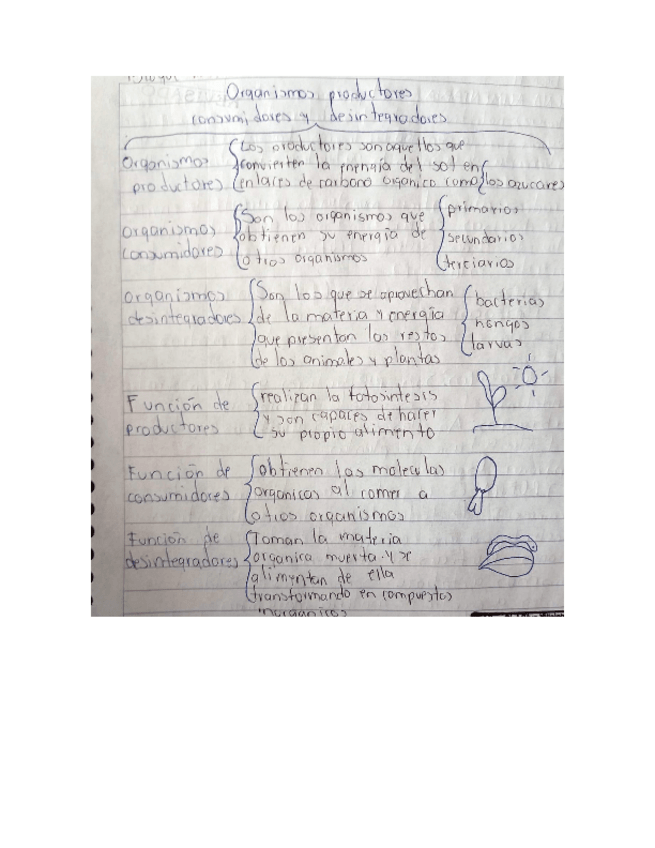 Organismos productores
consumidores y desintegradores
Organismos
productores
Los productores son aquellos que
convierten la energía del sol en
enlaces de carbono organico como
los azucares
organismos
consumidores
Son los organismos que
obtienen su energía de
otros organismos
primarios
secundarios
terciarios
organismos
desintegradores
Son los que se aprovechan
de la materia y energía
que presentan los restos
de los animales y plantas
bacterias
hongos
larvas
Función de
productores
realizan la fotosintesis
y son capaces de hacer
su propio alimento
Función de
consumidores
obtienen las moleculas
organicas al comer a
otros organismos
Función de
desintegradores
Toman la materia
organica muerta y se
alimentan de ella
transformando en compuestos
inorganicos